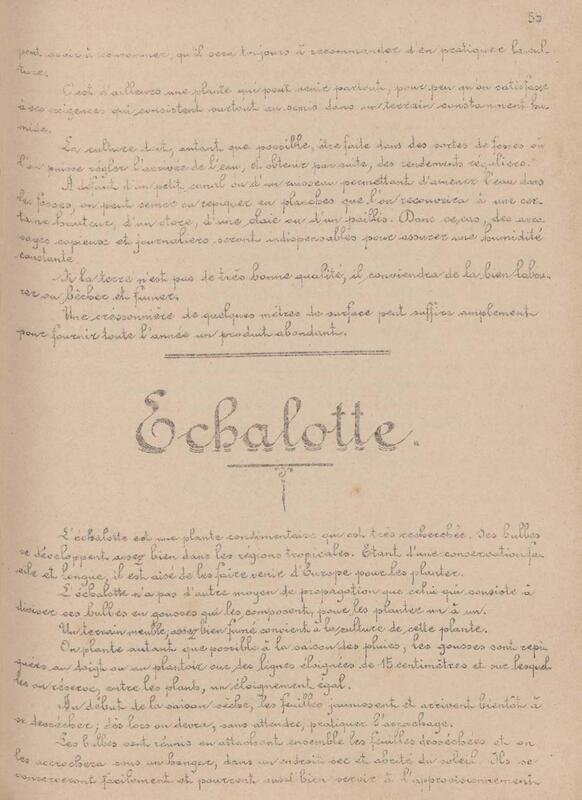 55
peut avoir à consommer, qu'il sera toujours à recommander d'en pratiquer la cul-
ture.
C'est d'ailleurs une plante qui peut venir partout, pour peu qu'on satisfasse
à ses exigences qui consistent surtout au semis dans un terrain constamment hu-
mide.
La culture doit, autant que possible, être faite dans des sortes de fosses où
l'on puisse régler l'arrivée de l'eau, et obtenir par suite, des rendements réguliers.
A défaut d'un petit canal ou d'un ruisseau permettant d'amener l'eau dans
les fosses, on peut semer ou repiquer en planches que l'on recouvrira à une cer-
taine hauteur, d'un store, d'une claie ou d'un paillis. Dans ce cas, des arro-
sages copieux et journaliers seront indispensables pour assurer une humidité
constante
Si la terre n'est pas de très bonne qualité, il conviendra de la bien labou-
rer ou bêcher et fumer.
Une cressonnière de quelques mètres de surface peut suffire amplement
pour fournir toute l'année un produit abondant.
Echalotte.
L'échalotte est une plante condimentaire qui est très recherchée. Ses bulbes
se développent assez bien dans les régions tropicales. Etant d'une conservation fa-
cile et longue, il est aisé de les faire venir d'Europe pour les planter.
L'échalotte n'a pas d'autre moyen de propagation que celui qui consiste à
diviser ses bulbes en gousses qui les composent, pour les planter un à un.
Un terrain meuble, assez bien fumé convient à la culture de cette plante.
On plante autant que possible à la saison des pluies, les gousses sont repi-
quées au doigt ou au plantoir sur des lignes éloignées de 15 centimètres et sur lesquel-
les on réserve, entre les plants, un éloignement égal.
Au début de la saison sèche, les feuilles jaunissent et arrivent bientôt à
se dessécher; dès lors on devra, sans attendre, pratiquer l'arrachage.
Les bulbes sont réunis en attachant ensemble les feuilles desséchées et on
les accrochera sous un hangar, dans un endroit sec et abrité du soleil. Ils se
conserveront facilement et pourront aussi bien servir à l'approvisionnement